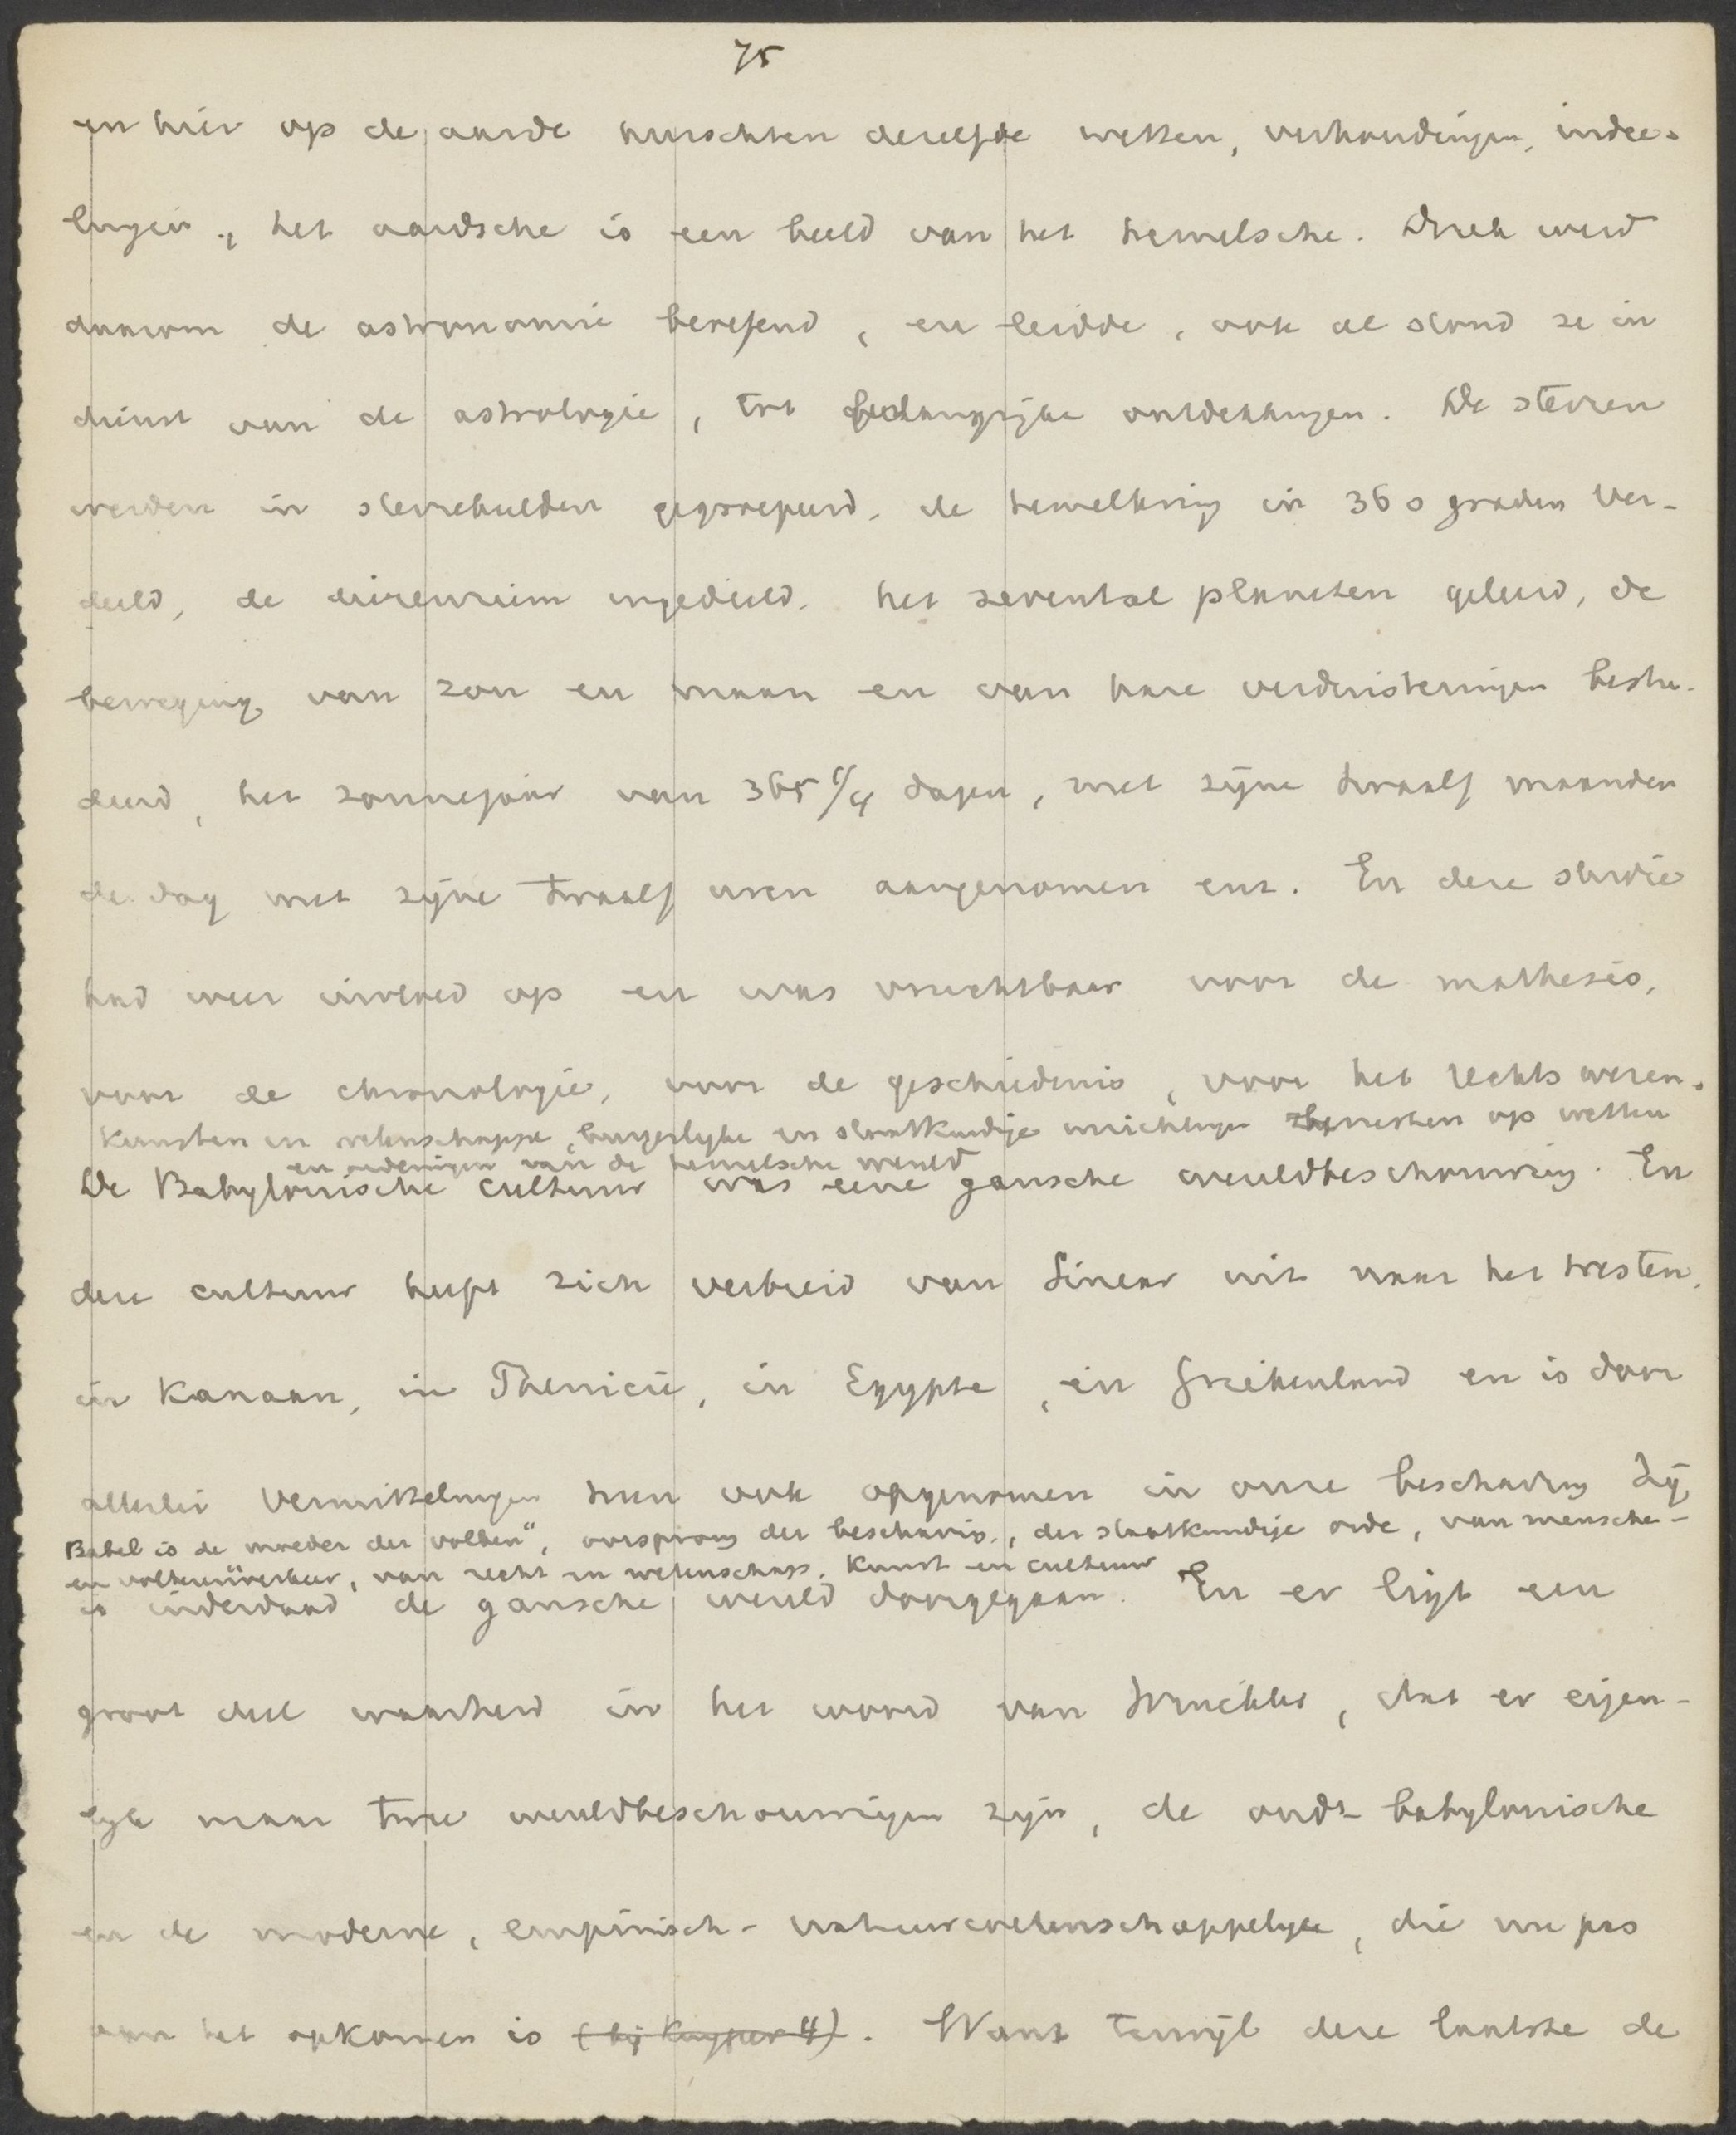 75
en hier op de aarde heerschten dezelfde wetten, verhoudingen, indee-
lingen., het aardsche is een beeld van het hemelsche. Druk werd
daarom de astronomie beoefend, en leidde, ook al stond ze in
dienst van de astrologie, tot belangrijke ontdekkingen. De sterren
werden in sterrebeelden gegroepeerd, de hemelkring in 360 graden ver-
deeld, de dierenriem ingedeeld, het zevental planeten geleerd, de
beweging van zon en maan en van hare verduisteringen bestu-
deerd, het zonnejaar van 365 1/4 dagen, met zijne twaalf maanden
de dag met zijne twaalf uren aangenomen enz. En deze studie
had weer invloed op en was vruchtbaar voor de mathesis,
voor de chronologie, voor de geschiedenis, voor het rechtswezen.
Kunsten en wetenschappen, burgerlyke en staatkundige inrichtingen rusten op wetten
en ordeningen van de hemelsche wereld
De Babylonische cultuur was eene gansche wereldbeschouwing. En
deze cultuur heeft zich verbreid van Sinear uit naar het westen,
in Kanaan, in Phenicië, in Egypte, in Griekenland en is door
allerlei vermittelingen heen ook opgenomen in onze beschaving. Zij
Babel is de moeder der volken", oorsprong der beschaving, der staatkundige orde, van mensche-
en volkenverkeer, van recht en wetenschap, kunst en cultuur
is inderdaad de gansche wereld doorgegaan. En er ligt een
groot deel waarheid in het woord van Winckler, dat er eigen-
lyk maar twee wereldbeschouwingen zijn, de oud-babylonische
en de moderne, empirisch-natuurwetenschappelyke, die nu pas
aan het opkomen is (bij Kuyper 4). Want terwijl deze laatste de